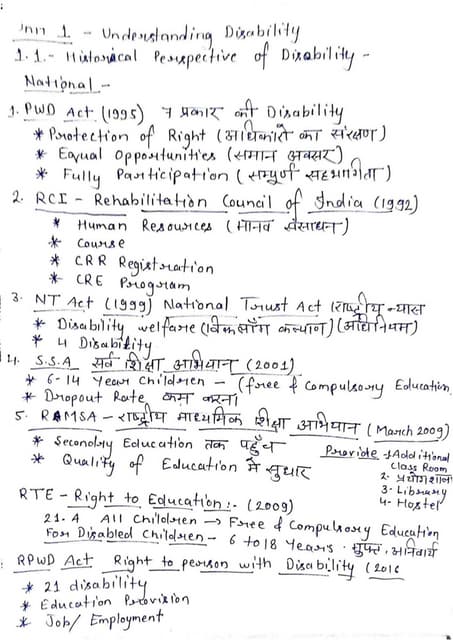 Unit 1 - Understanding Disability
1.1.- Historical Perspective of Disability -
National -
1. PWD Act (1995) 7 प्रकार की Disability
* Protection of Right (अधिकारो का संरक्षण)
* Equal Opportunities (समान अवसर)
* Fully Participation (सम्पूर्ण सहभागिता)
2. RCI - Rehabilitation Council of India (1992)
* Human Resources (मानव संसाधन)
* Course
* CRR Registration
* CRE Program
3. NT Act (1999) National Trust Act (राष्ट्रीय न्यास
* Disability welfare (विकलाँग कल्याण) (अधिनियम)
* 4 Disability
4. S.S.A सर्व शिक्षा अभियान (2001)
* 6-14 Year Children - (free & compulsory Education.
* Dropout Rate कम करना
5. RAMSA - राष्ट्रीय माध्यमिक शिक्षा अभियान (March 2009)
* Secondory Education तक पहुँच
* Quality of Education मे सुधार
Provide → 1 Additional
Class Room
2. प्रयोगशाला
3- Library
4- Hostel
RTE - Right to Education :- (2009)
21.A All Children → Free & Compulsory Education
For Disabled Children - 6 to 18 Years. मुफ्त, अनिवार्य
RPWD Act Right to person with Disability (2016
* 21 disability
* Education Provision
* Job/ Employment